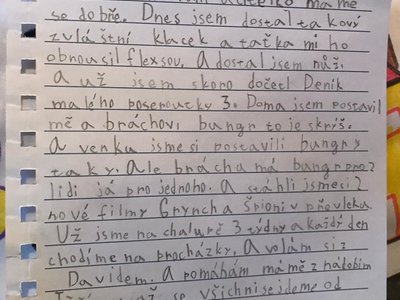 učitelko máme
se dobře. Dnes jsem dostal takový
zvláštní klacek a taťka mi ho
obrousil flexsou. A dostal jsem nůži
a už jsem skoro dočetl Deník
malého poseroutky 3. Doma jsem postavil
mě a bráchovi bungr to je skrýš.
A venku jsme si postavili bungry
taky. Ale brácha má bungr pro 2
lidi já pro jednoho. A stáhli jsme si 2
nové filmy Gryncha Špioni v převleku.
Už jsme na chalupě 3 týdny a každý den
chodíme na procházky. A volám si z
Davidem. A pomáhám mámě z nádobím
až se všichni sejdeme od